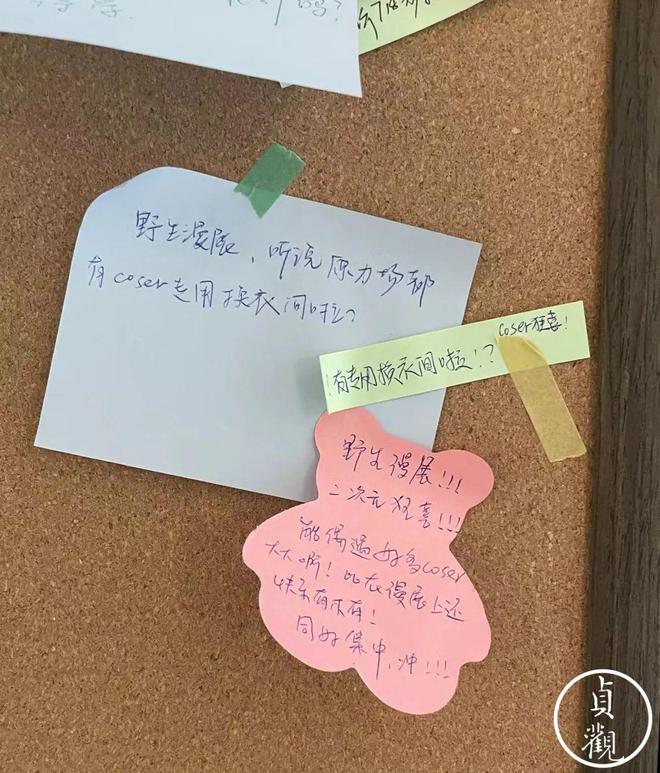 野生漫展，听说原力场都
有coser专用换衣间啦？
coser狂喜！
！有专用换衣间啦！？
野生漫展！！！
二次元狂喜！！！
能偶遇好多coser
大大啊！比在漫展上还
快乐有木有！
同好集中，冲！！！
貞
觀